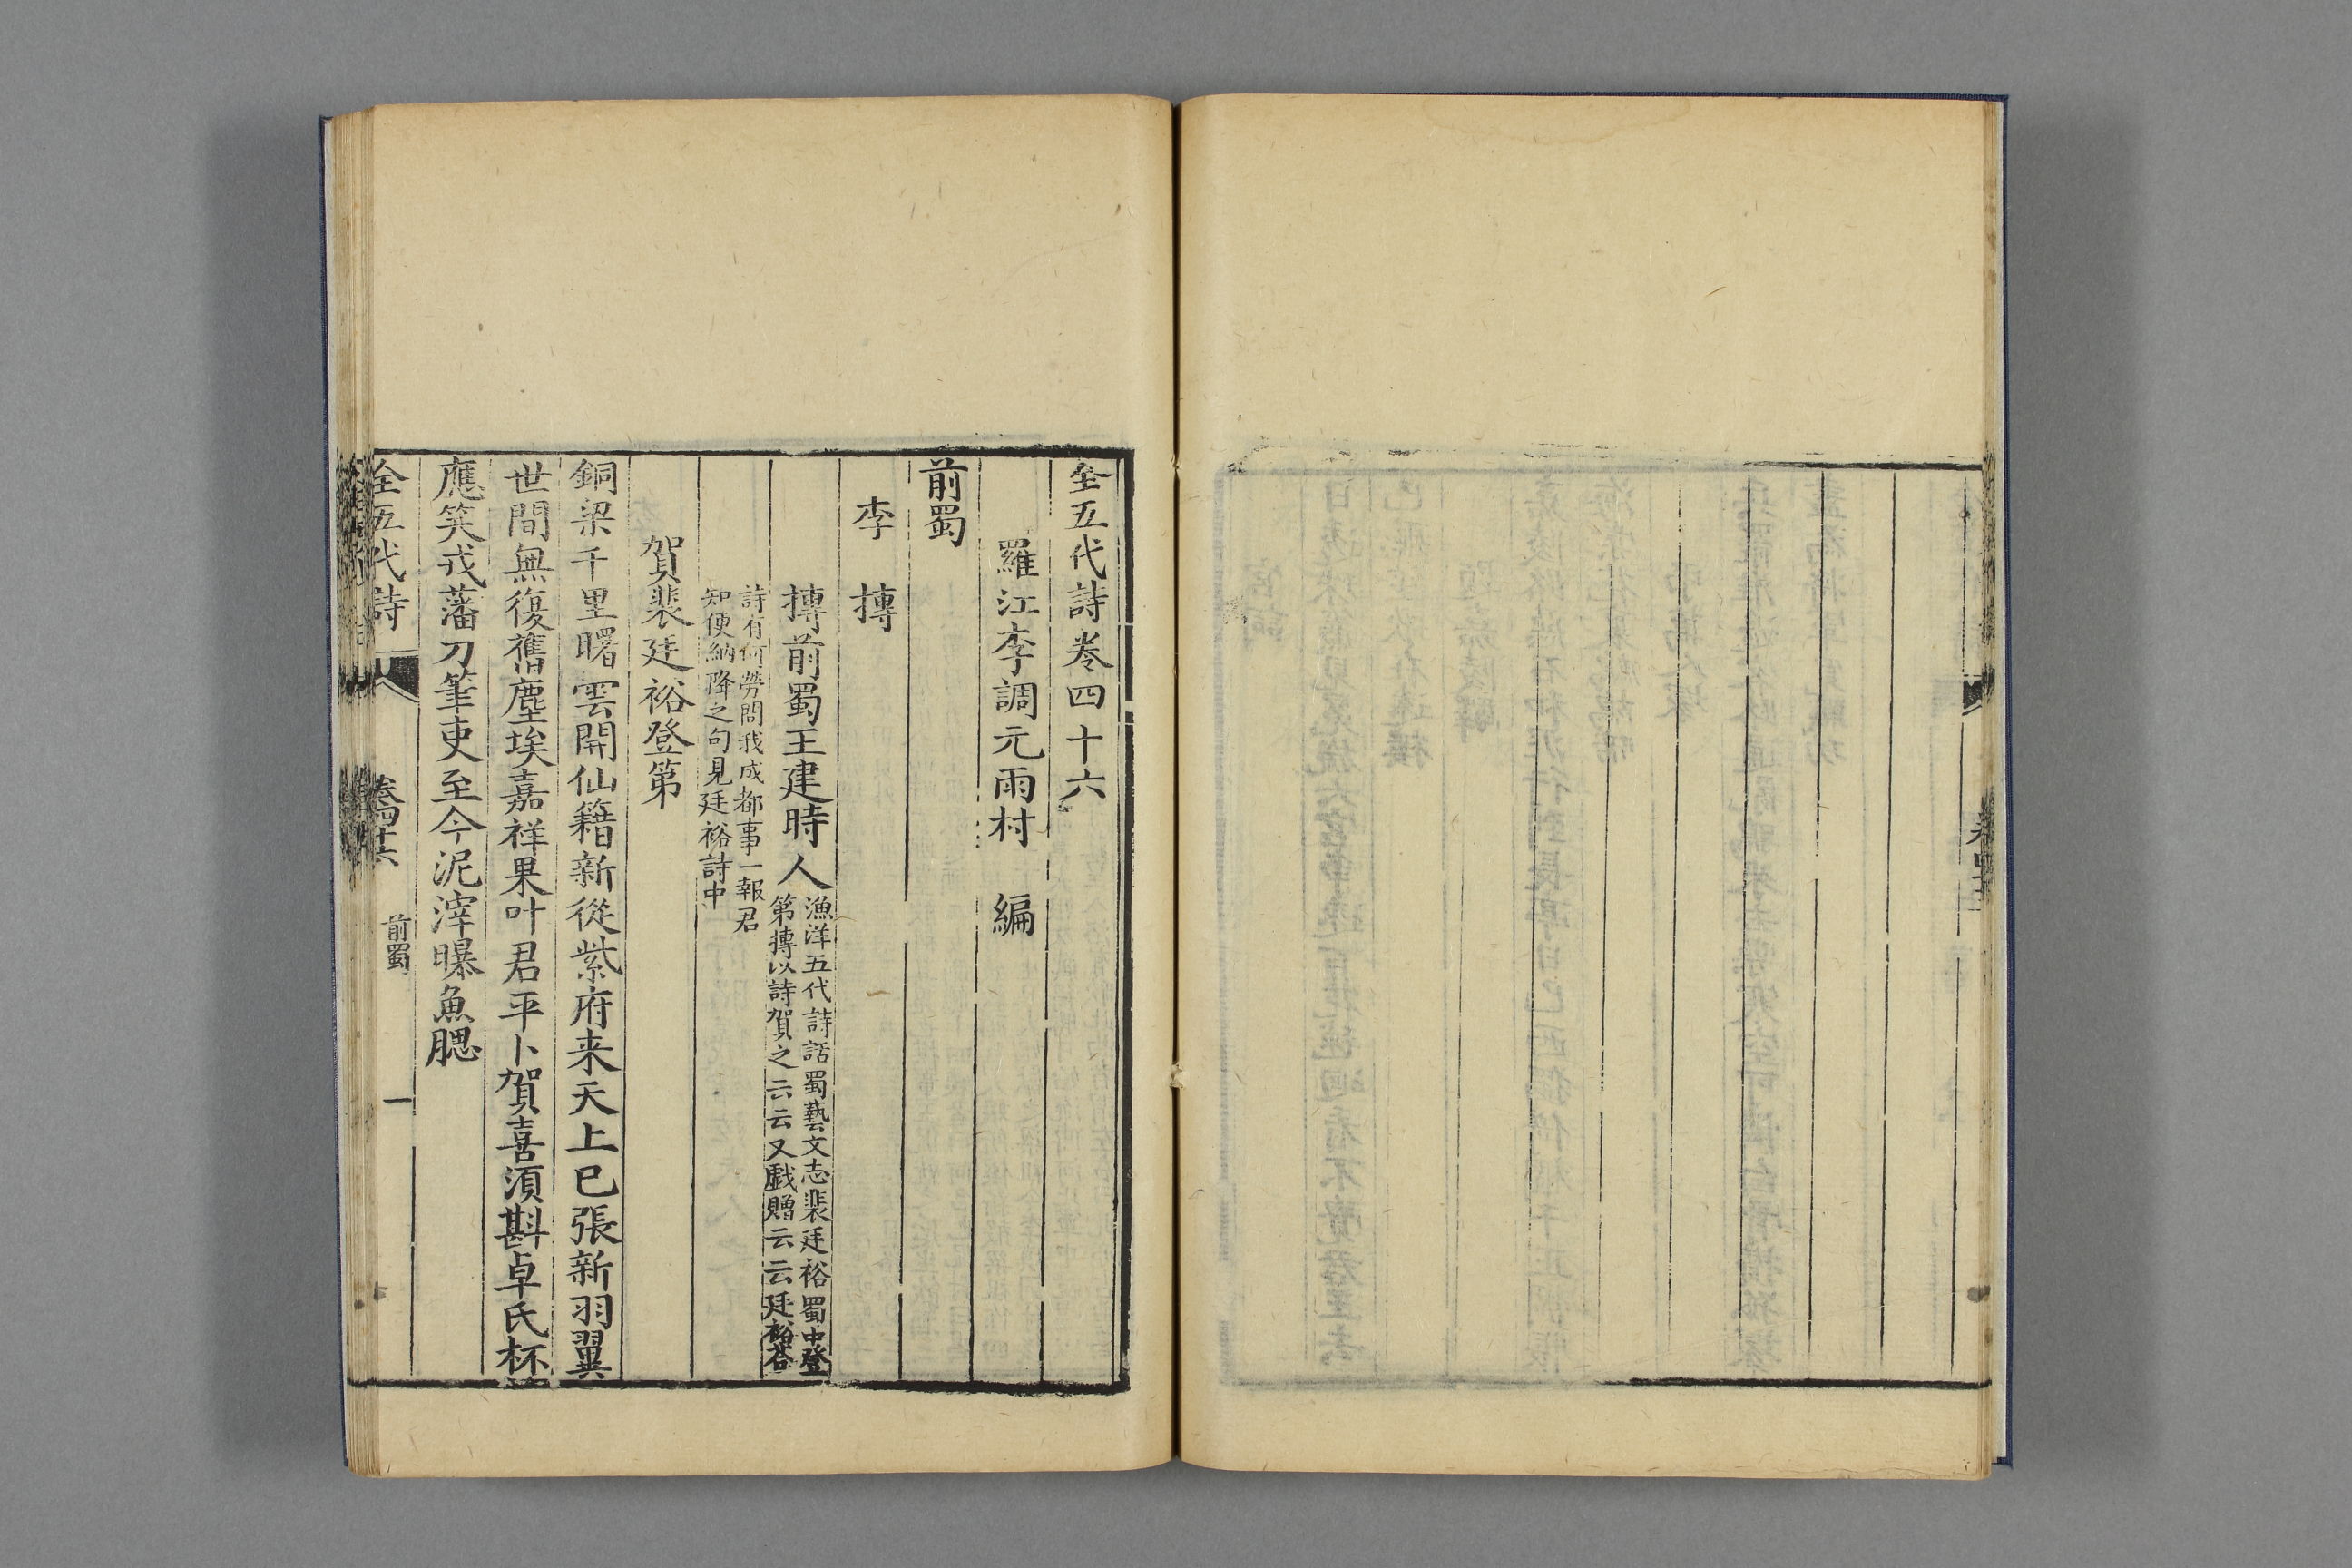 全五代詩卷四十六
羅江李調元雨村 編
前蜀
李 摶
摶前蜀王建時人
漁洋五代詩話蜀藝文志裴廷裕蜀中登
第摶以詩賀之云云又戲贈云云廷裕答
詩有何勞問我成都事一報君
知便納降之句見廷裕詩中
賀裴廷裕登第
銅梁千里曙雲開仙籍新從紫府来天上已張新羽翼
世間無復舊塵埃嘉祥果叶君平卜賀喜須斟卓氏杯
應笑戎藩刀筆吏至今泥滓曝魚腮
全五代詩 卷四十六 前蜀 一